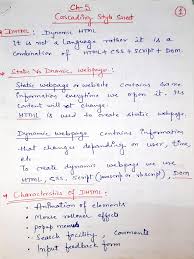 Ch-5
Cascading Style Sheet
①
DHTML : Dynamic HTML
It is not a language rather it is a
combination of HTML + CSS + Script + Dom
Static Vs Dynamic webpage :
Static webpage or website contains same
information everytime we open it. Its
content will not change.
HTML is used to create static webpage.
Dynamic webpage contains information
that changes depending on user, time,
etc.
To create dynamic webpage we use
HTML, CSS, Script (javascript or vbscript), DOM
Characteristics of DHTML
Animation of elements
Mouse rollover effects
popup menus
Search facility, comments
Input feedback form